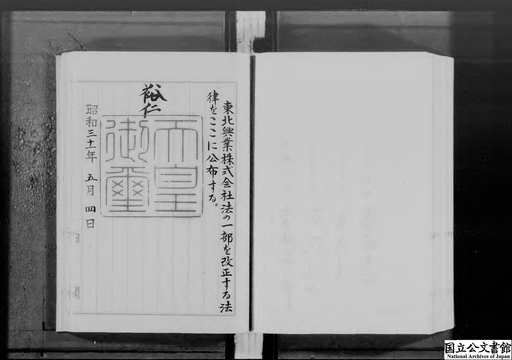 東北興業株式会社法の一部を改正する法
律をここに公布する。
裕仁
天皇
御璽
昭和三十一年 五月 四日
国立公文書館
National Archives of Japan